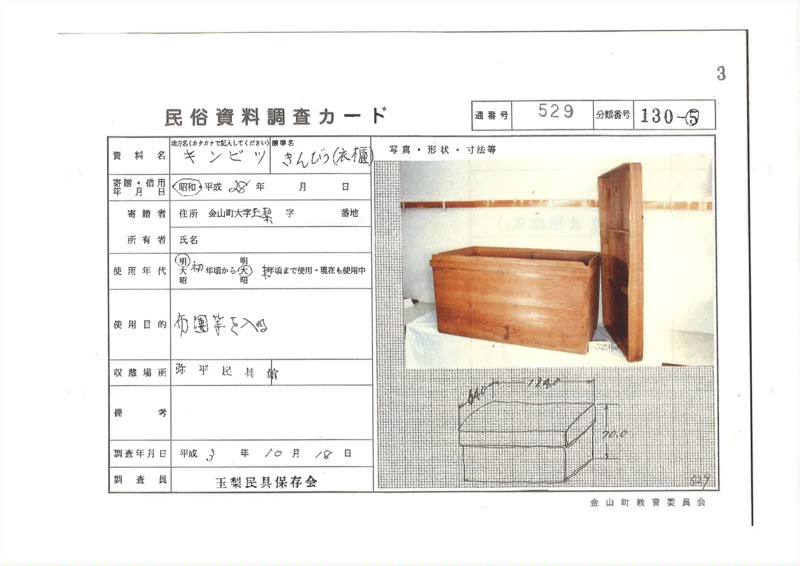 3
民俗資料調査カード
通番号 529 分類番号 130-⑤
資料名
地方名(カタカナで記入してください) 標準名
キンビツ きんびつ(衣櫃)
写真・形状・寸法等
寄贈・借用
年月日
昭和・平成 28年 月 日
寄贈者 住所 金山町大字玉梨 字 番地
所有者 氏名
使用年代
明 大 昭 初 年頃から 明 大 昭 年頃まで使用・現在も使用中
使用目的 布團等を入る
収蔵場所 弥平民具館
備考
調査年月日 平成 3 年 10 月 18 日
調査員 玉梨民具保存会
64.0 124.0
70.0
529
金山町教育委員会